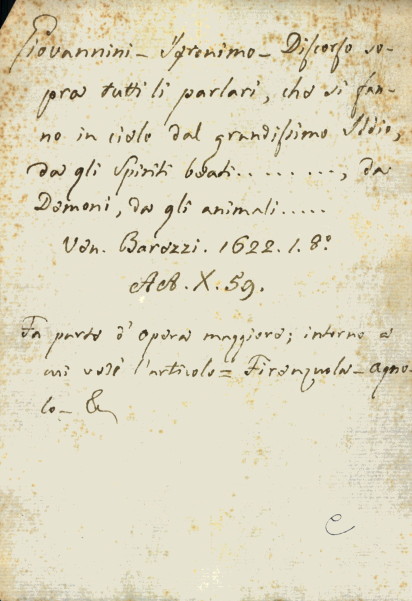 Giovannini = Ieronimo = Discorso so-
pra tutti li parlari, che si fan-
no in cielo dal grandissimo Iddio,
da gli Spiriti beati........., da
Demoni, da gli animali.....
Ven. Barezzi. 1622. 1. 8.º
AA. X. 59.
Fa parte d'opera maggiore; intorno a
cui vedi l'articolo = Firenzuola = Agno-
lo = &
C